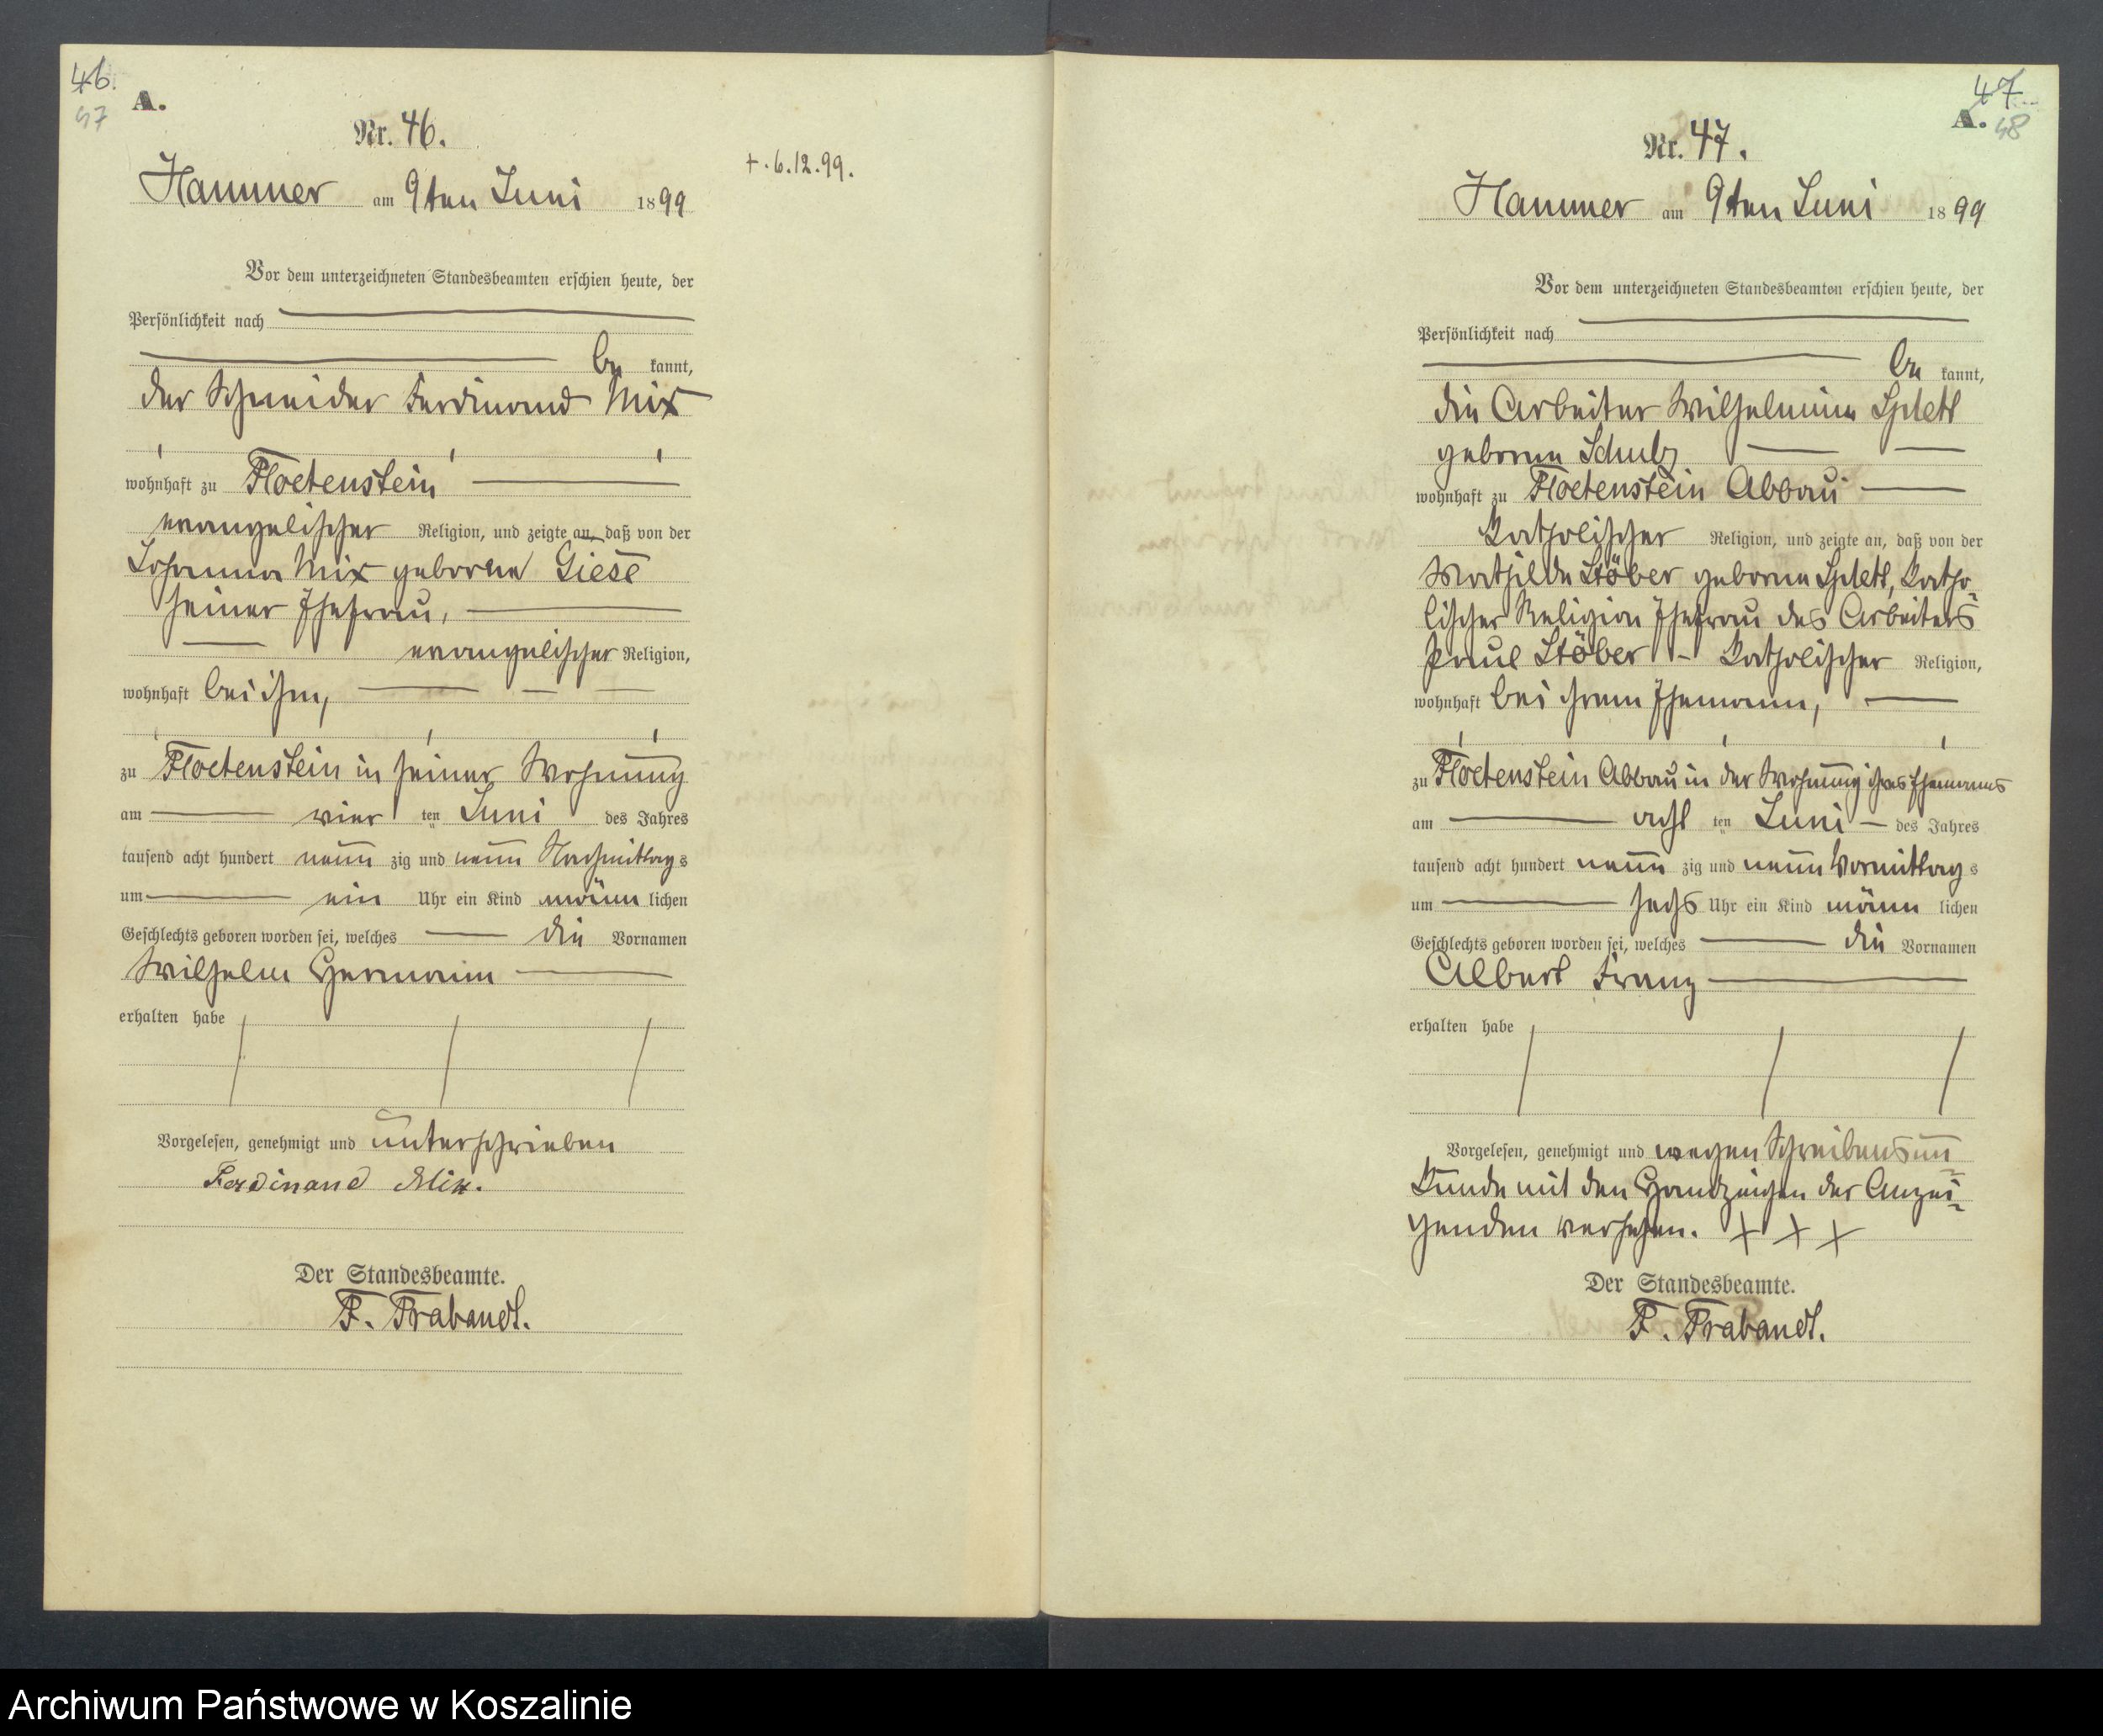 46.
47
A.
Nr. 46.
+. 6.12.99.
Hammer am 9ten Juni 1899
Vor dem unterzeichneten Standesbeamten erschien heute, der
Persönlichkeit nach
be kannt,
der Schneider Ferdinand Mix
wohnhaft zu Floetenstein
evangelischer Religion, und zeigte an, daß von der
Johanna Mix geborene Giese
seiner Ehefrau,
evangelischer Religion,
wohnhaft bei ihm,
zu Floetenstein in seiner Wohnung
am vier ten Juni des Jahres
tausend acht hundert neun zig und neun Nachmittag s
um ein Uhr ein Kind männ lichen
Geschlechts geboren worden sei, welches die Vornamen
Wilhelm Hermann
erhalten habe
Vorgelesen, genehmigt und unterschrieben
Ferdinand Mix.
Der Standesbeamte.
F. Trabandt.
47
A. 48
Nr. 47.
Hammer am 9ten Juni 1899
Vor dem unterzeichneten Standesbeamten erschien heute, der
Persönlichkeit nach
be kannt,
die Arbeiter Wilhelmine
geborene Schulz
wohnhaft zu Floetenstein Abbau
Katholischer Religion, und zeigte an, daß von der
Mathilde Stöber geborene Katho-
lischer Religion Ehefrau des Arbeiters
Paul Stöber - Katholischer Religion,
wohnhaft bei ihrem Ehemann,
zu Floetenstein Abbau in der Wohnung ihres Ehemanns
am acht ten Juni des Jahres
tausend acht hundert neun zig und neun Vormittag s
um sechs Uhr ein Kind männ lichen
Geschlechts geboren worden sei, welches die Vornamen
Albert Franz
erhalten habe
Vorgelesen, genehmigt und wegen Schreibensun-
kunde mit den Handzeichen der Anzei-
genden versehen. + + +
Der Standesbeamte.
F. Trabandt.
Archiwum Państwowe w Koszalinie